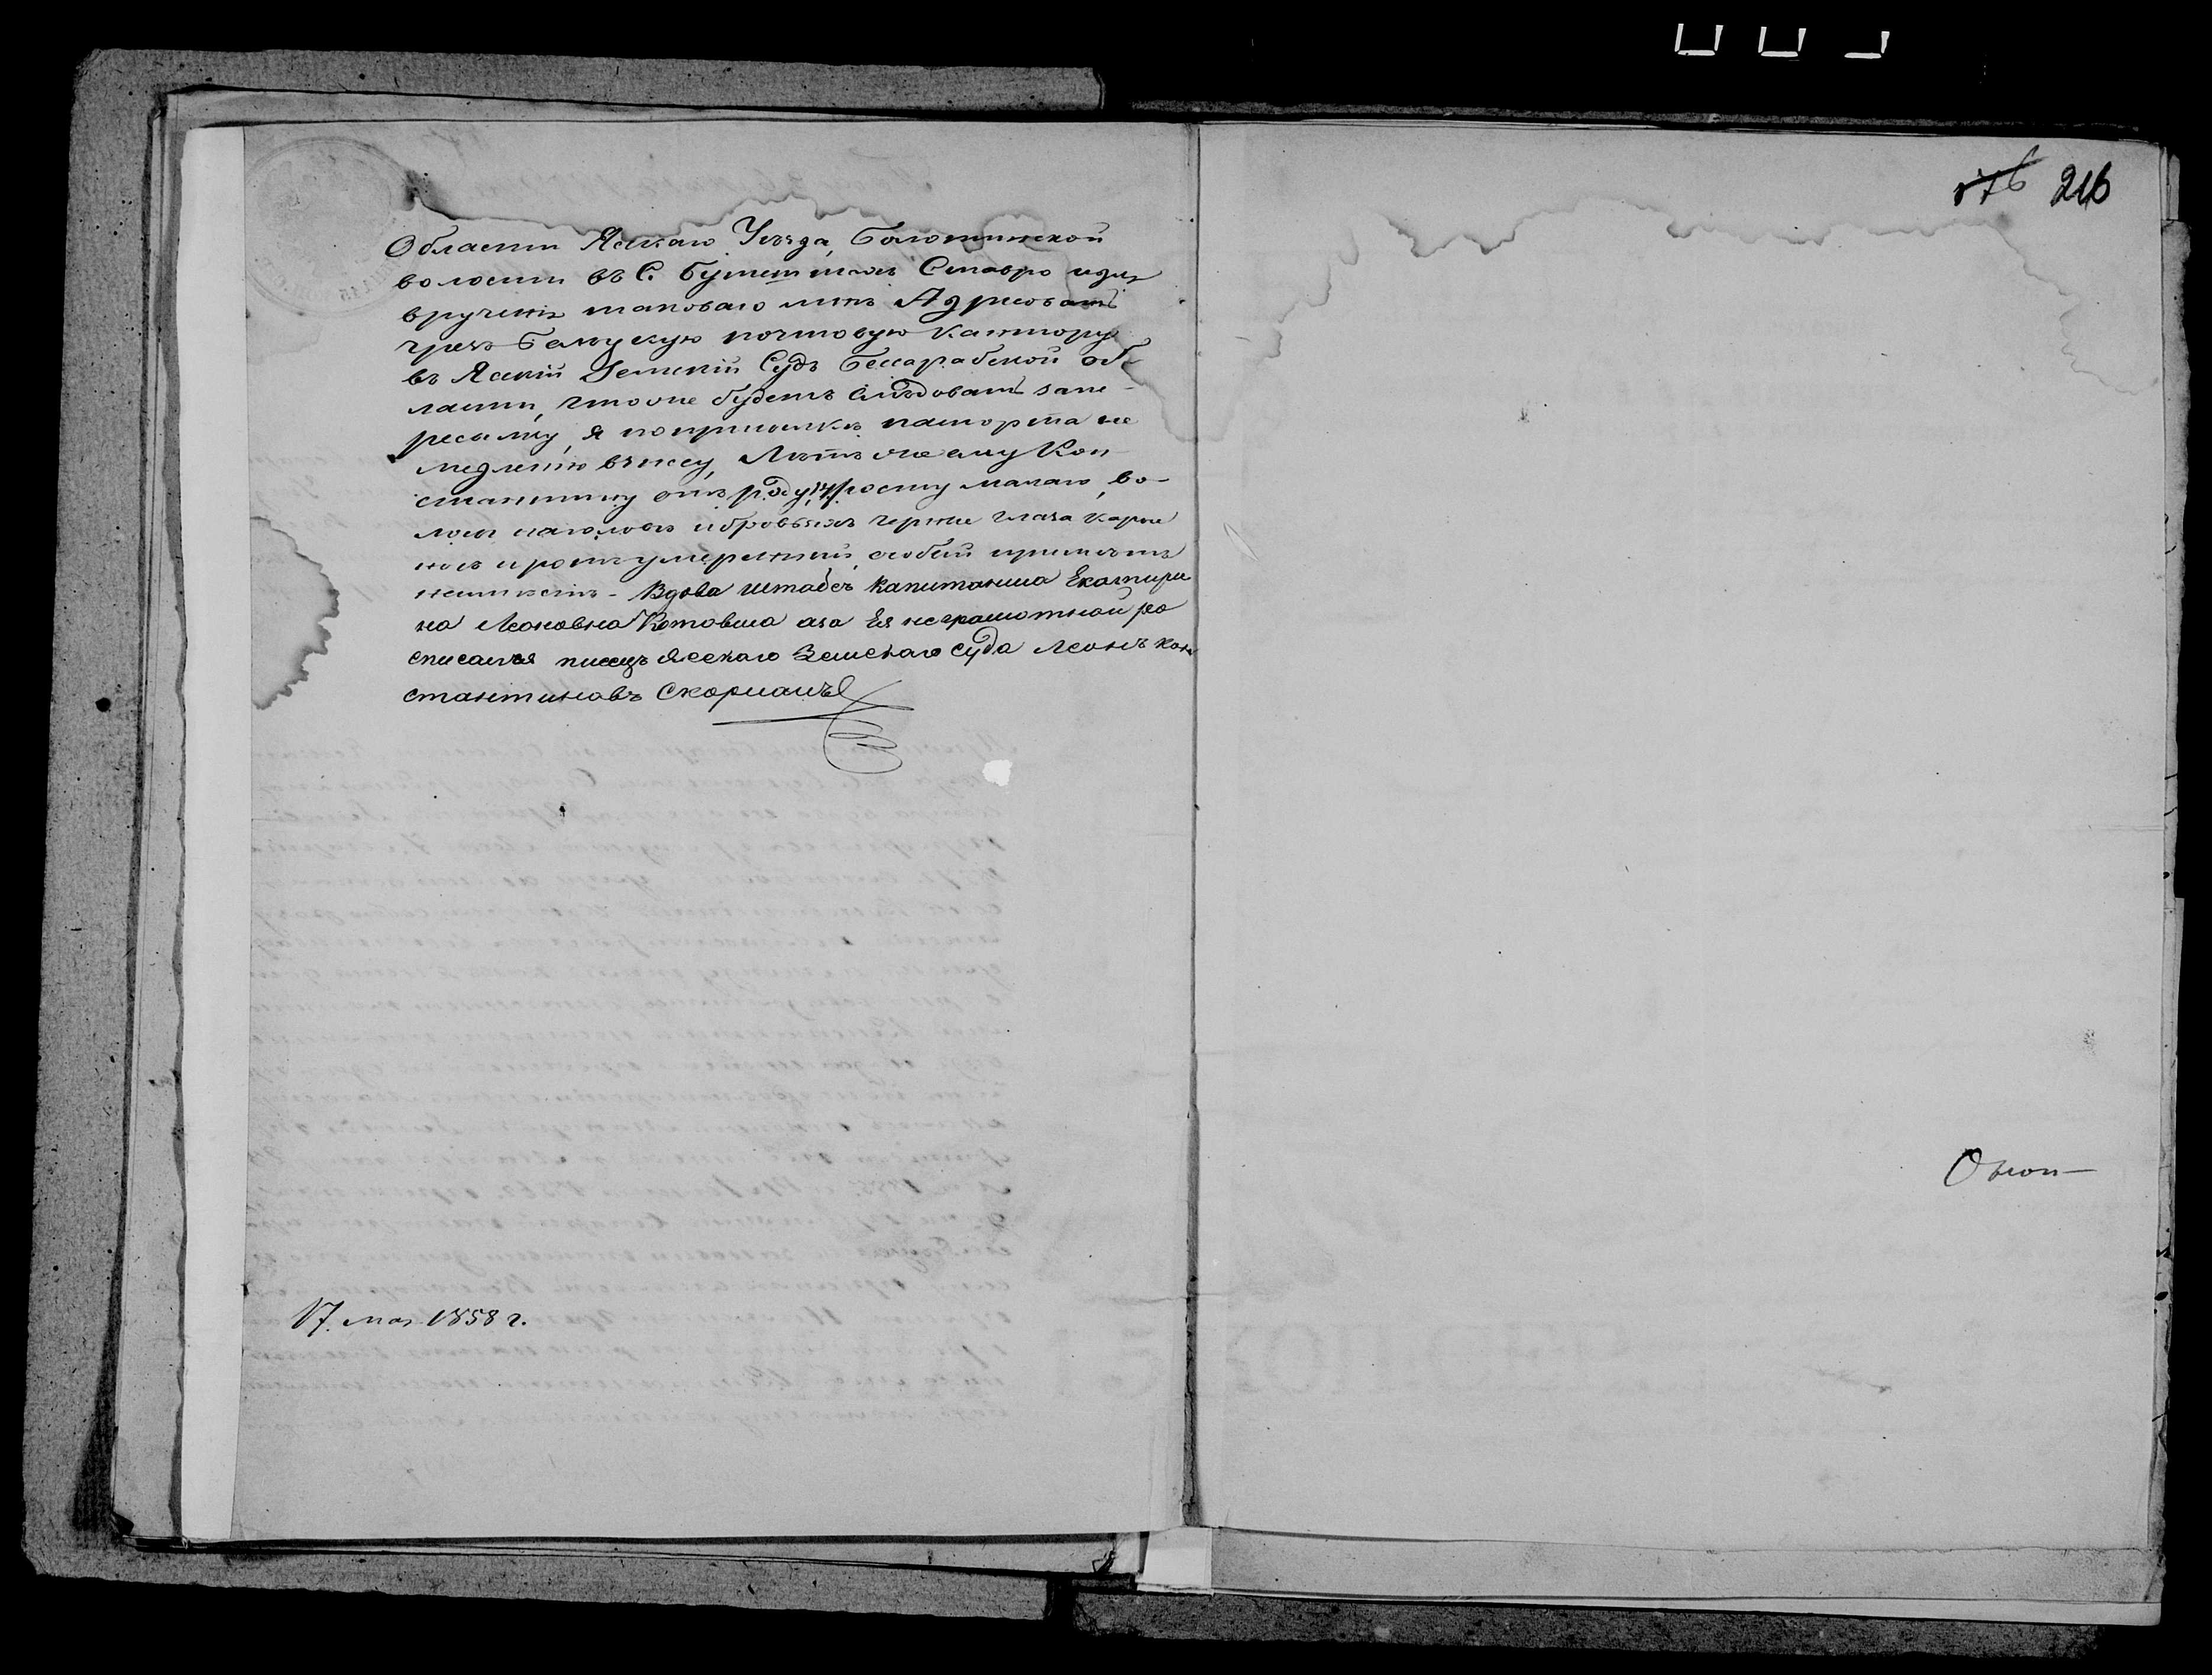 176 216
Области Яскаго Уезда, Болотинской
волости въ С. Бушеть Ставро и для
врученiя таковаго мнѣ Адресовать
чрезъ Бельцкую почтовую Кантору
въ Яскiй Земскiй Судъ Бессарабской об-
ласти, что оже будетъ слѣдовать запе-
ресылку, я по присылкѣ паспорта не
медленно взнесу, Лѣтъ оже ему Кон
стантину отъ роду 17, росту малаго, во-
лосы наголовѣ и бровяхъ черные глаза карые
носъ и ротъ умеренный, особый примѣтъ
неимѣетъ - Вдова штабсъ капитанша Екатири
на Леоновна Котовша аза Ея неграмотной ро
списался писецъ Ясскаго Земскаго суда Леонъ Кон
стантиновъ Скорпанъ
17. Мая 1858 г.